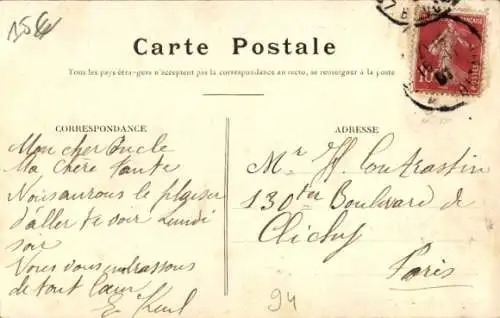 15€
Carte Postale
Tous les pays étrangers n'acceptent pas la correspondance au recto, se renseigner à la poste
CORRESPONDANCE
Mon cher Oncle
Ma chère Tante
Nous aurons le plaisir
d'aller te voir Lundi
soir
Nous vous embrassons
de tout Cœur
E.
ADRESSE
Mr H. Contrastin
130ter Boulevard de
Clichy
Paris
94
10